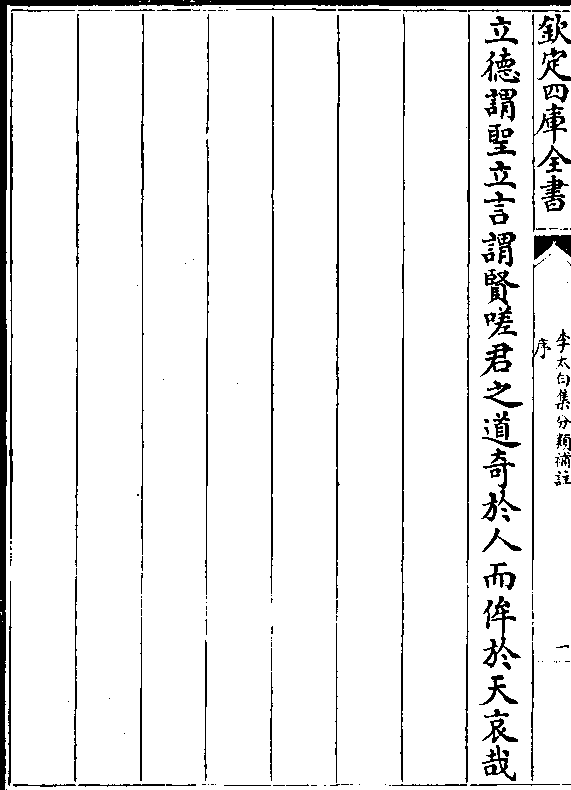 欽定四庫全書
李太白集分類補註
序
一
立德謂聖立言謂賢嗟君之道奇於人而侔於天哀哉